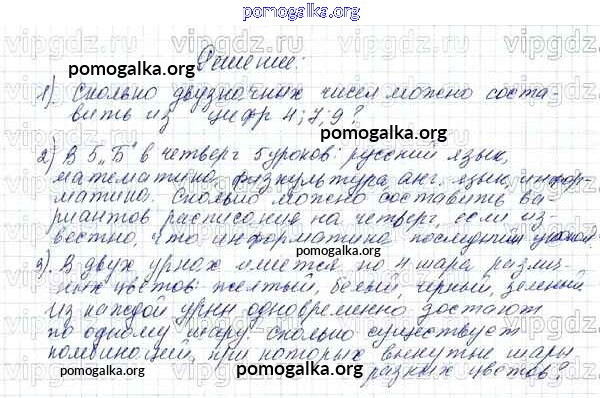 pomogalka.org
Решение:
pomogalka.org
1) Сколько двузначных чисел можно соста-
вить из цифр 4; 7; 9?
pomogalka.org
2) В 5 „Б" в четверг 5 уроков: русский язык,
pomogalka.org
математика, физкультура, анг. язык, инфор-
матика. Сколько можно составить ва-
риантов расписания на четверг, если из-
вестно, что информатика последний урок
pomogalka.org
3). В двух урнах имеется по 4 шара различ-
ных цветов: желтый, белый, черный, зеленый
Из каждой урны одновременно достают
по одному шару. Сколько существует
комбинаций, при которых вынутые шары
pomogalka.org
разных цветов?
vipgdz.ru